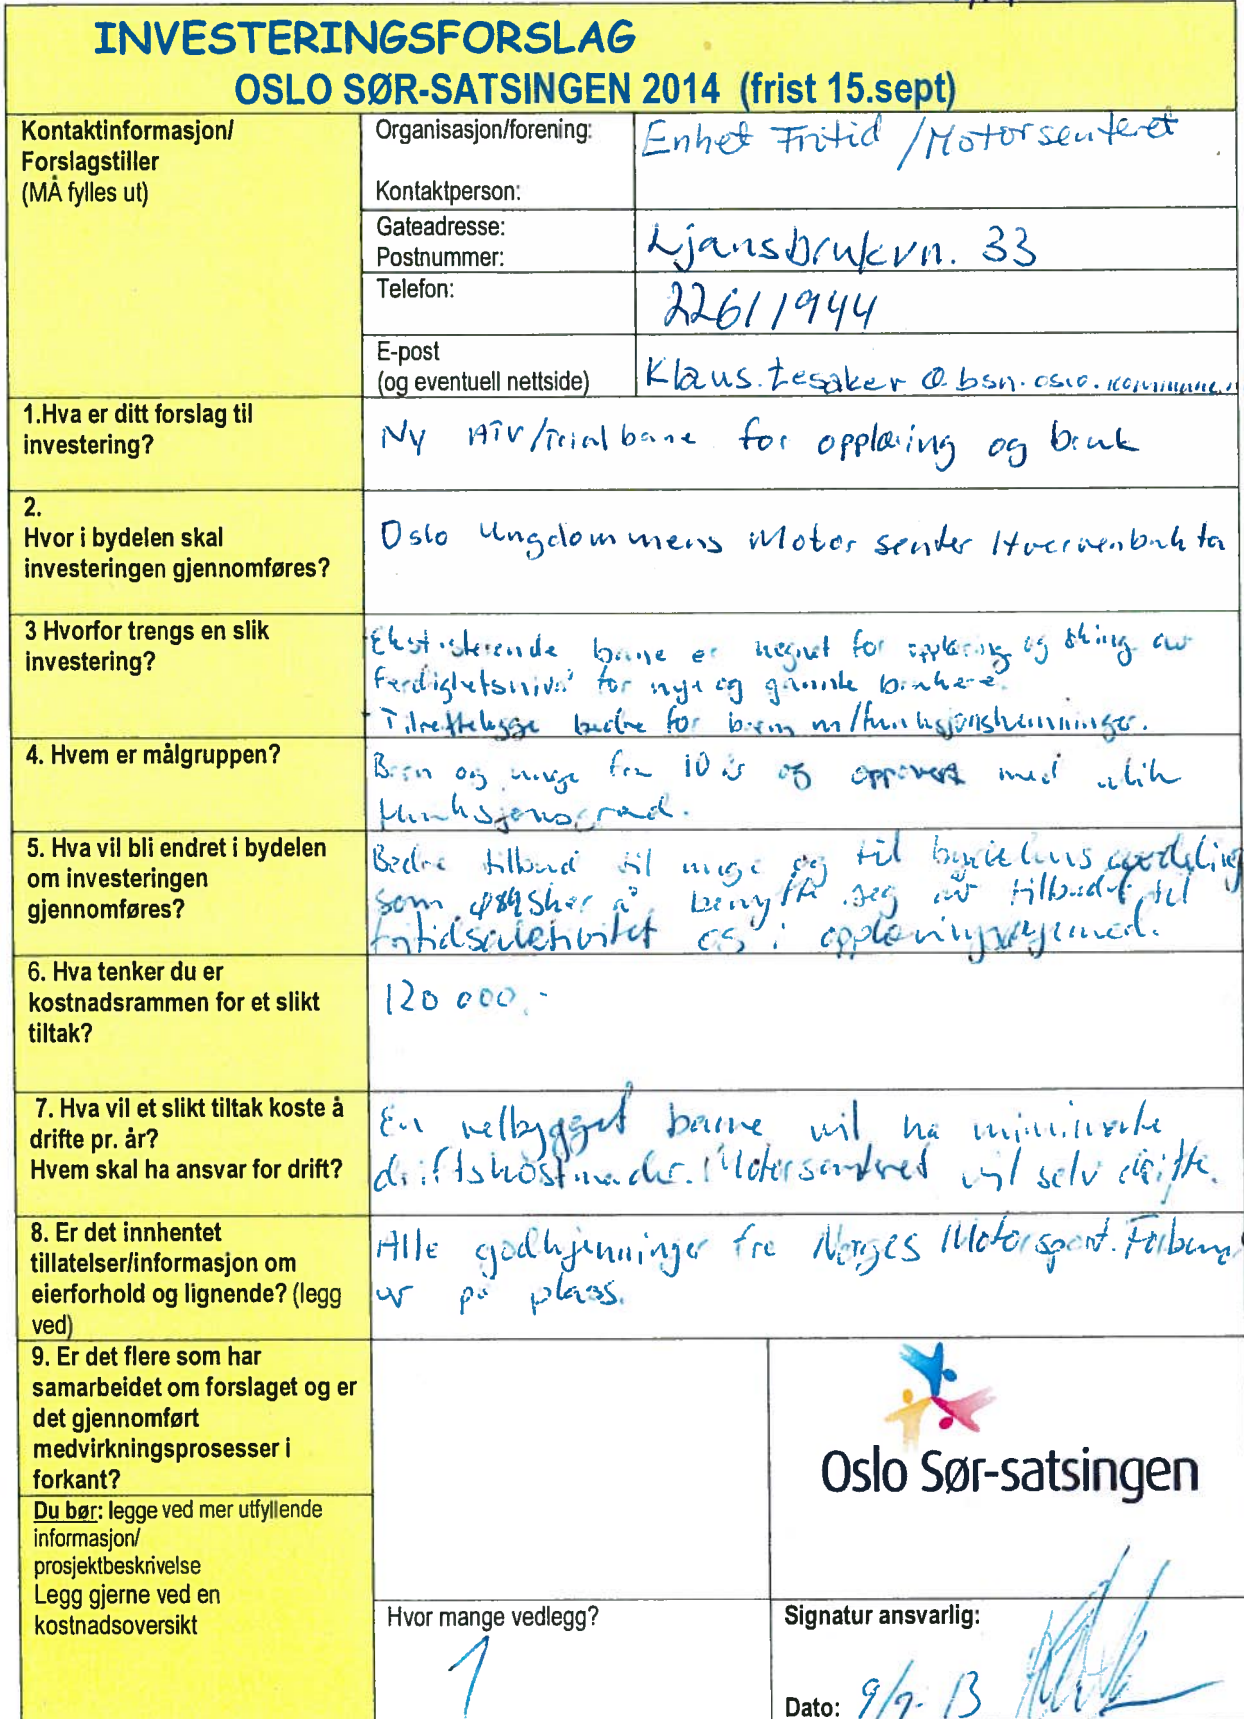 INVESTERINGSFORSLAG
OSLO SØR-SATSINGEN 2014 (frist 15.sept)
Kontaktinformasjon/
Forslagstiller
(MÅ fylles ut)
Organisasjon/forening:
Enhet Fritid / Motorsenteret
Kontaktperson:
Gateadresse:
Postnummer:
Ljansbrukvn. 33
Telefon:
22611944
E-post
(og eventuell nettside)
Klaus.tesaker @ bsn.oslo.kommune.n
1.Hva er ditt forslag til
investering?
Ny ATV/Trial bane for opplæring og bruk
2.
Hvor i bydelen skal
investeringen gjennomføres?
Oslo Ungdommens Motor senter Hvervenbukta
3 Hvorfor trengs en slik
investering?
Eksisterende bane er uegnet for opplæring og øking av
ferdighetsnivå for nye og gamle brukere.
- Tilrettelegge bedre for barn m/funksjonshemninger.
4. Hvem er målgruppen?
Barn og unge fra 10 år og oppover med ulik
funksjonsgrad.
5. Hva vil bli endret i bydelen
om investeringen
gjennomføres?
Bedre tilbud til unge og til bydelens avdeling
som ønsker å benytte seg av tilbudet til
fritidsaktivitet og i opplæringsøyemed.
6. Hva tenker du er
kostnadsrammen for et slikt
tiltak?
120 000,-
7. Hva vil et slikt tiltak koste å
drifte pr. år?
Hvem skal ha ansvar for drift?
En velbygget bane vil ha minimale
driftskostnader. Motorsenteret vil selv drifte.
8. Er det innhentet
tillatelser/informasjon om
eierforhold og lignende? (legg
ved)
Alle godkjenninger fra Norges Motorsport. Forbund
er på plass.
9. Er det flere som har
samarbeidet om forslaget og er
det gjennomført
medvirkningsprosesser i
forkant?
Oslo Sør-satsingen
Du bør: legge ved mer utfyllende
informasjon/
prosjektbeskrivelse
Legg gjerne ved en
kostnadsoversikt
Hvor mange vedlegg?
1
Signatur ansvarlig:
Dato: 9/9-13